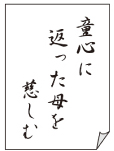 童心に
返った母を
慈しむ